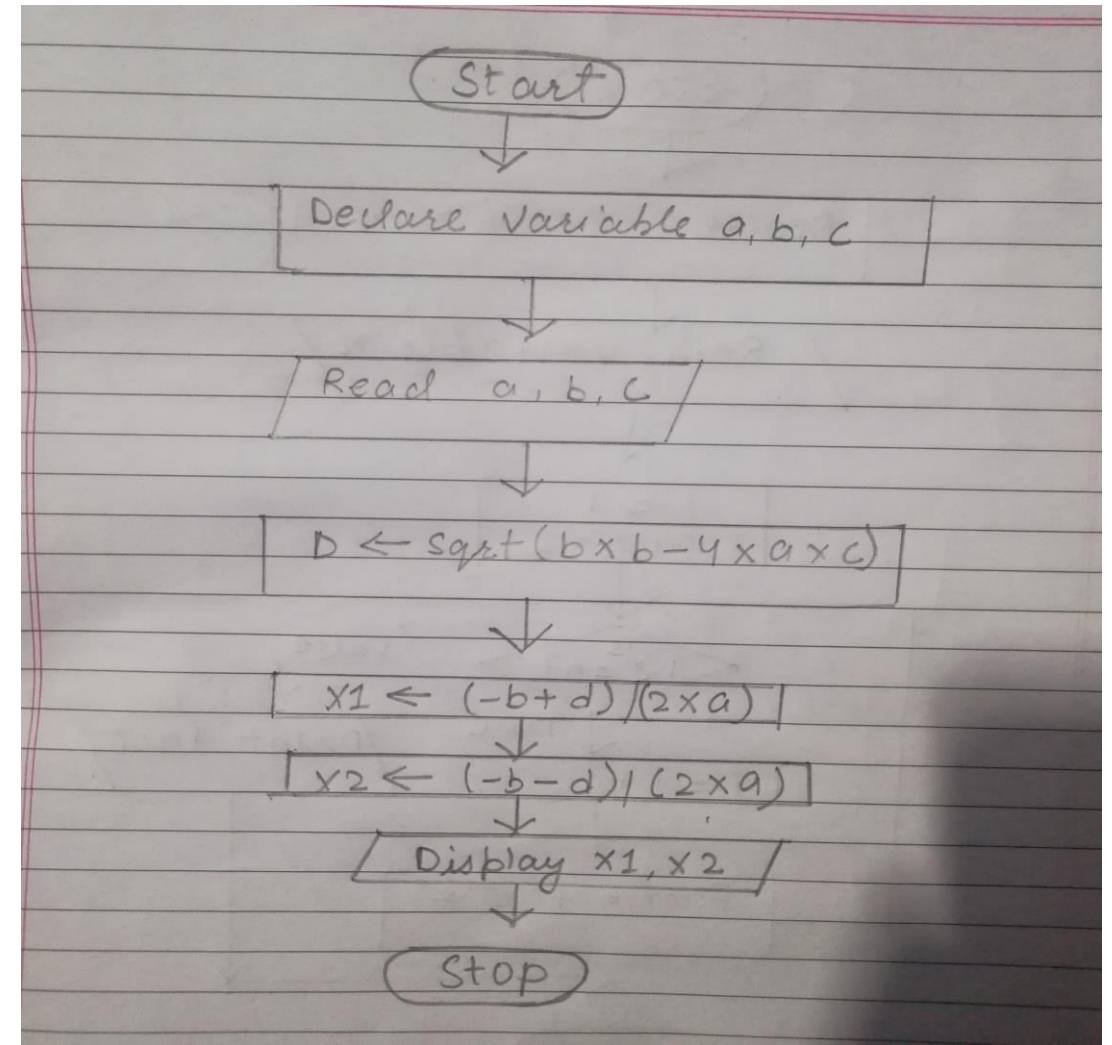 Start
Declare variable a, b, c
Read a, b, c
D ← sqrt (b x b - 4 x a x c)
x1 ← (-b + d) / (2 x a)
x2 ← (-b - d) / (2 x a)
Display x1, x2
Stop